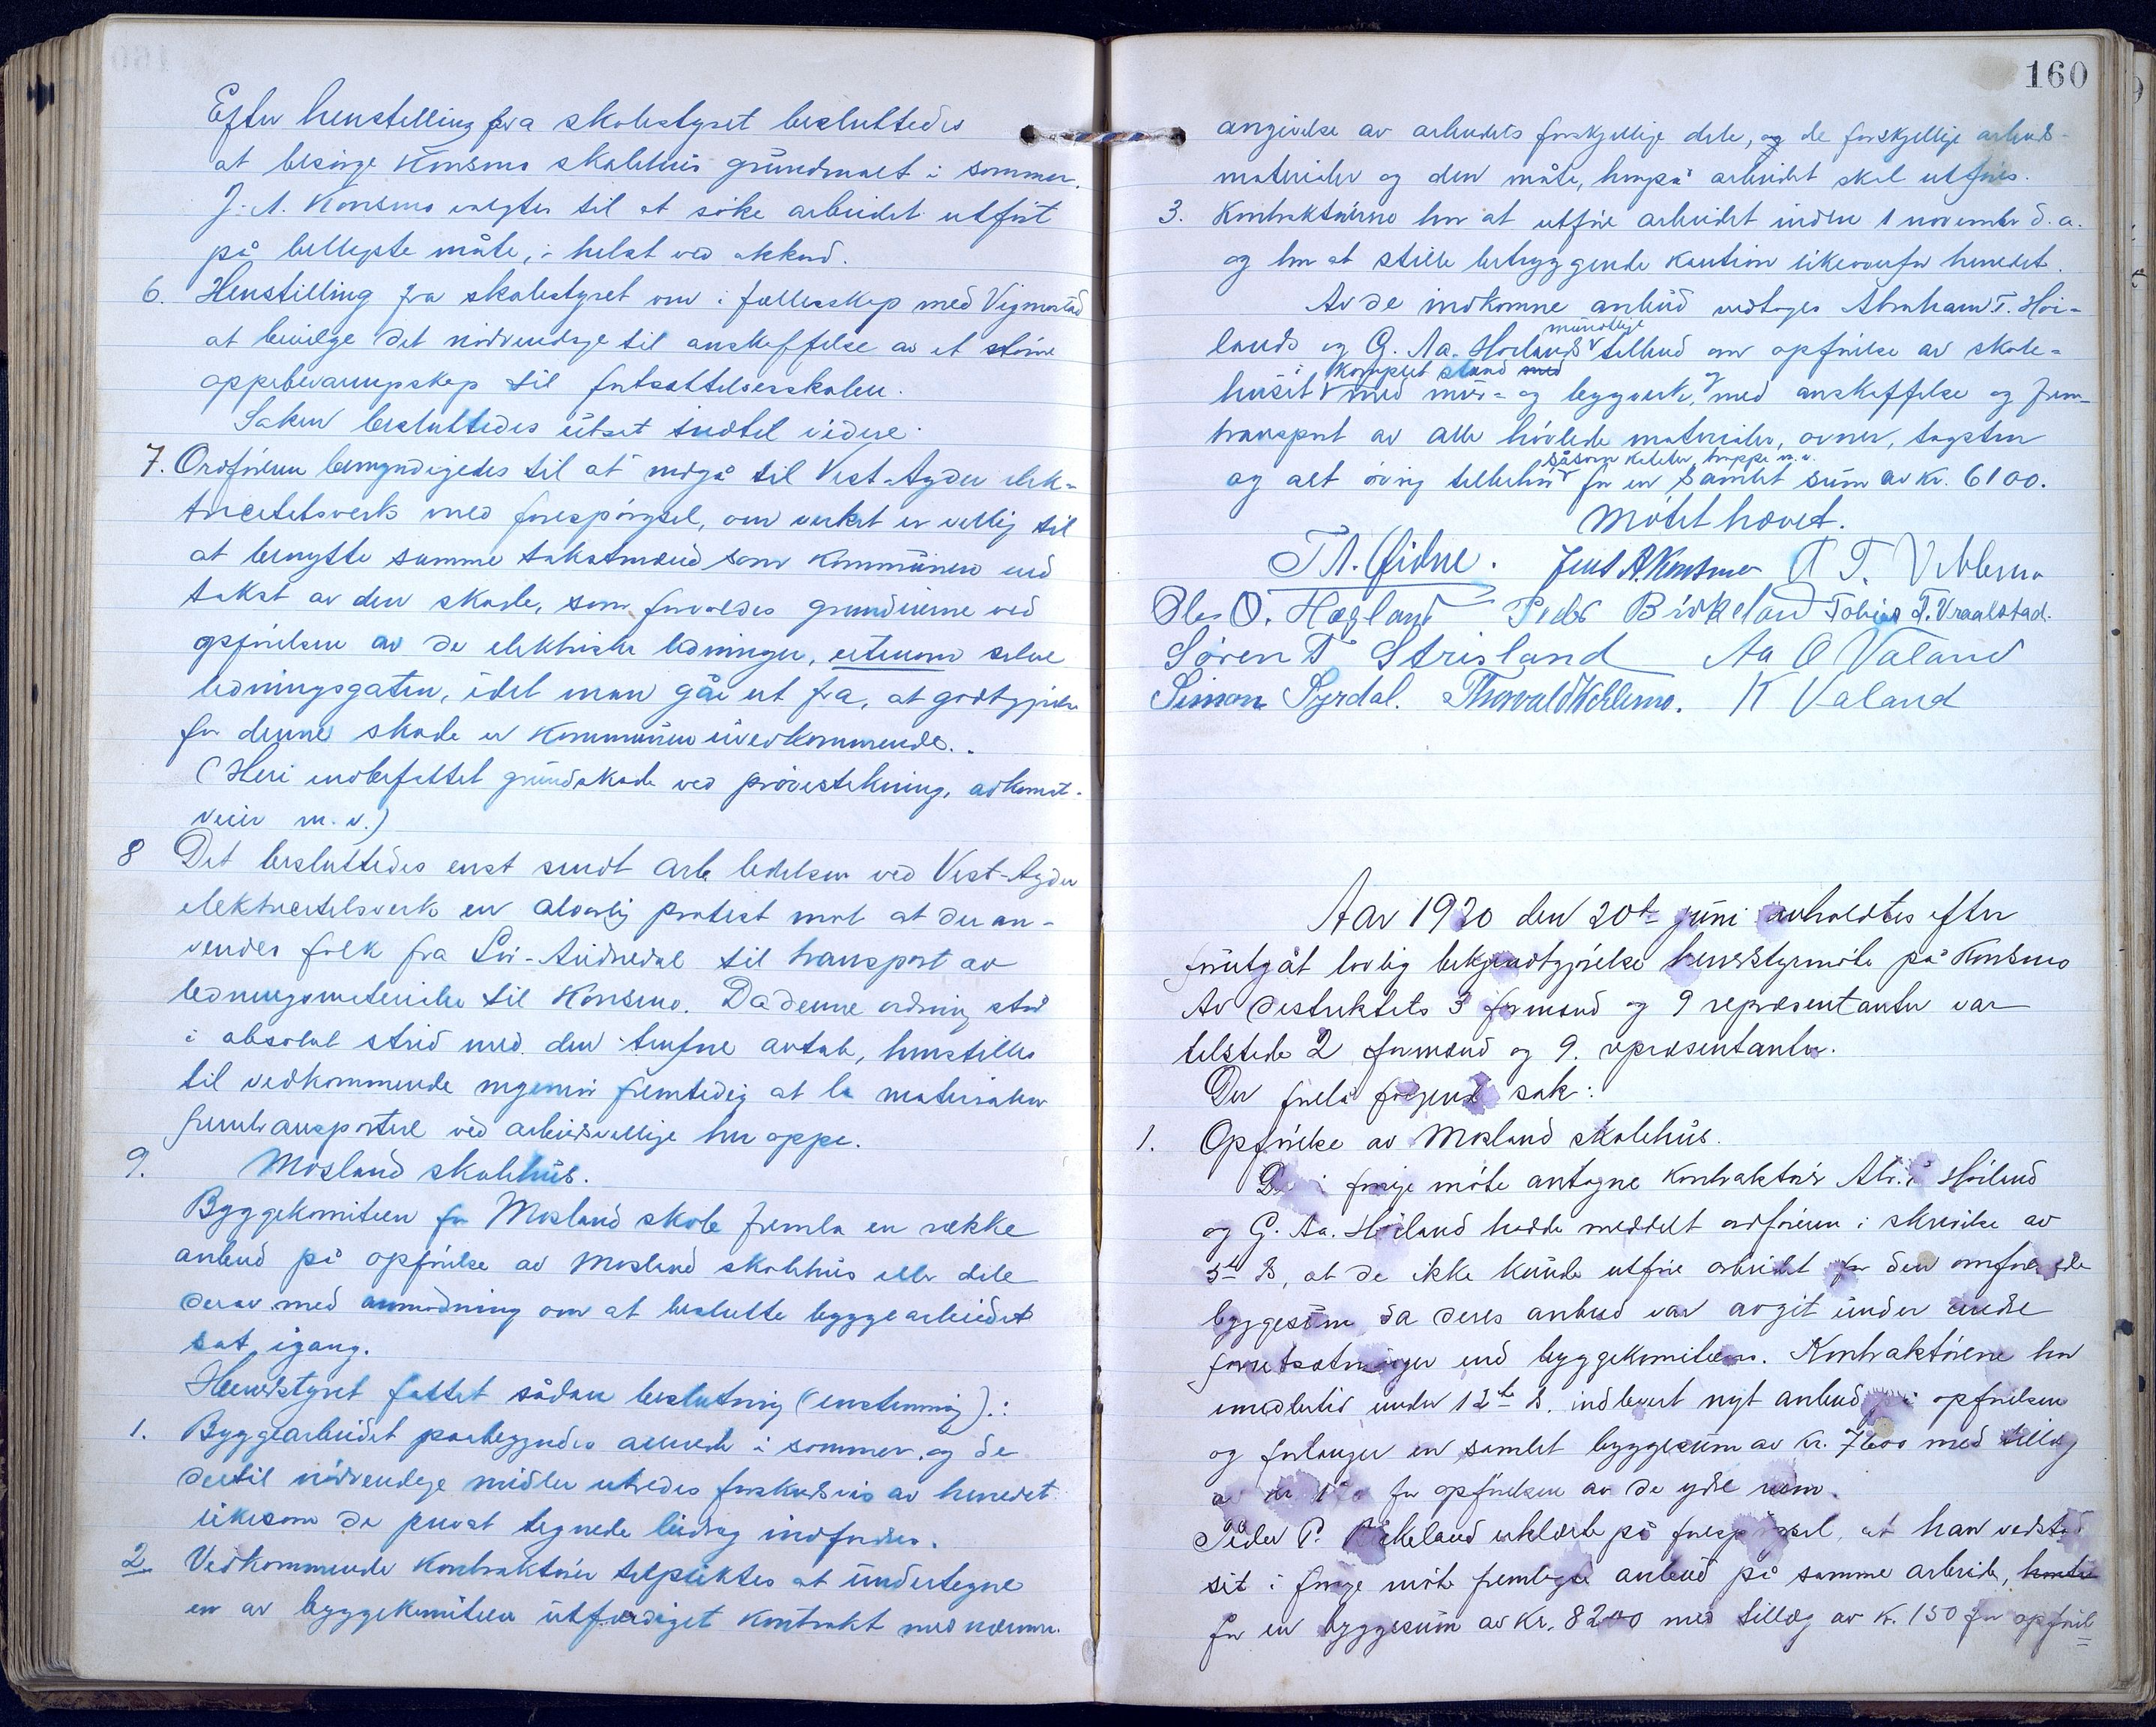 Efter henstilling fra skolestyret besluttedes
at besörge Konsmo skolehus grundmalt i sommer.
J. A. Konsmo valgtes til at söke arbeidet utfört
på belligste måte, helst ved akkord.
6. Henstilling fra skolestyret om i fællesskap med Vigmostad
at bevilge det nödvendige til anskaffelse av et större
oppbevaringsskap til fortsættelsesskolen.
Saken besluttedes utsat indtil videre.
7. Ordföreren bemyndigedes til at nedgå til Vest-Agder elek-
tricitetsverk med forespörgsel, om verket er villig til
at benytte samme takstmænd som kommunen ved
takst av den skade, som forvoldes grundeierne ved
opförelsen av de elektriske ledninger, utenom selve
ledningsgaten, idet man går ut fra, at godtgjörelse
for denne skade er kommunen uvedkommende.
(Heri indbefattet grundskade ved prövestikning, adkomst-
veier m. v.)
8 Det besluttedes enst. sendt arb. ledelsen ved Vest-Agder
elektricitetsverk en alvorlig protest mot at der an-
vendes folk fra Sör-Audnedal til transport av
ledningsmateriele til Konsmo. Da denne ordning står
i absolut strid med den trufne avtale, henstilles
til vedkommende ingeniör fremtidig at la materialer
fremtransportere ved arbeidsvillige her oppe.
9. Mosland skolehus.
Byggekomiteen for Mosland skole fremla en række
anbud på opförelse av Mosland skolehus eller dele
derav med anmodning om at beslutte byggearbeidet
sat igang.
Herredstyret fattet sådan beslutning (enstemmig).:
1. Byggearbeidet påbegyndes allerede i sommer og de
dertil nödvendige midler utredes forskudsvis av herredet
likesom de privat tegnede bidrag indfordres.
2. Vedkommende kontraktör tilpliktes at undertegne
en av byggekomiteen utfærdiget kontrakt med nærmere
160
angivelse av arbeidets forskjellige dele, og de forskjellige arbeids-
materialer og den måte, hvorpå arbeidet skal utföres.
3. Kontraktörerne har at utföre arbeidet inden 1 november d. a.
og har at stille betryggende kaution likeoverfor herredet.
Av de indkomne anbud vedtoges Abraham T. Höi-
lands og G. Aa. Höilands mundtlige tilbud om opförelse av skole-
huset i komplet stand med mur- og bygverk, og med anskaffelse og frem-
transport av alle hövlede materialer, ovner, tagsten
og alt övrig tilbehör såsom kjelder, trappe m. v. for en samlet sum av kr. 6100.
Mötet hævet.
T A. Öidne. Jens A. Konsmo T T. Vehlemo
Ole O. Hægland Peder Birkeland Tobias T. Vraalstad.
Sören T Strisland Aa O Valand
Simon Syrdal. Thorvald Vehlemo. K Valand
Aar 1920 den 20de juni avholdtes efter
forutgåt lovlig bekjendtgjörelse herredstyrmöte på Konsmo
Av distriktets 3 formænd og 9 repræsentanter var
tilstede 2 formænd og 9. repræsentanter.
Der forelå fölgende sak:
1. Opförelse av Mosland skolehus.
De i forrige möte antagne kontraktör Abr. Höiland
og G. Aa. Höiland hadde meddelt ordföreren i skrivelse av
5te ds, at de ikke kunde utföre arbeidet for den omförende
byggesum, da deres anbud var avgit under andre
forutsætninger end byggekomiteens. Kontraktörerne har
imidlertid under 12te ds. indlevert nyt anbud på opförelsen
og forlanger en samlet byggesum av kr. 7600 med tillæg
av kr for opförelsen av de ydre rum.
Peder P. Birkeland erklærte på forespörgsel, at han vedstod
sit i forrige möte fremlagte anbud på samme arbeide,
for en byggesum av kr. 8200 med tillæg av kr. 150 for opförel=